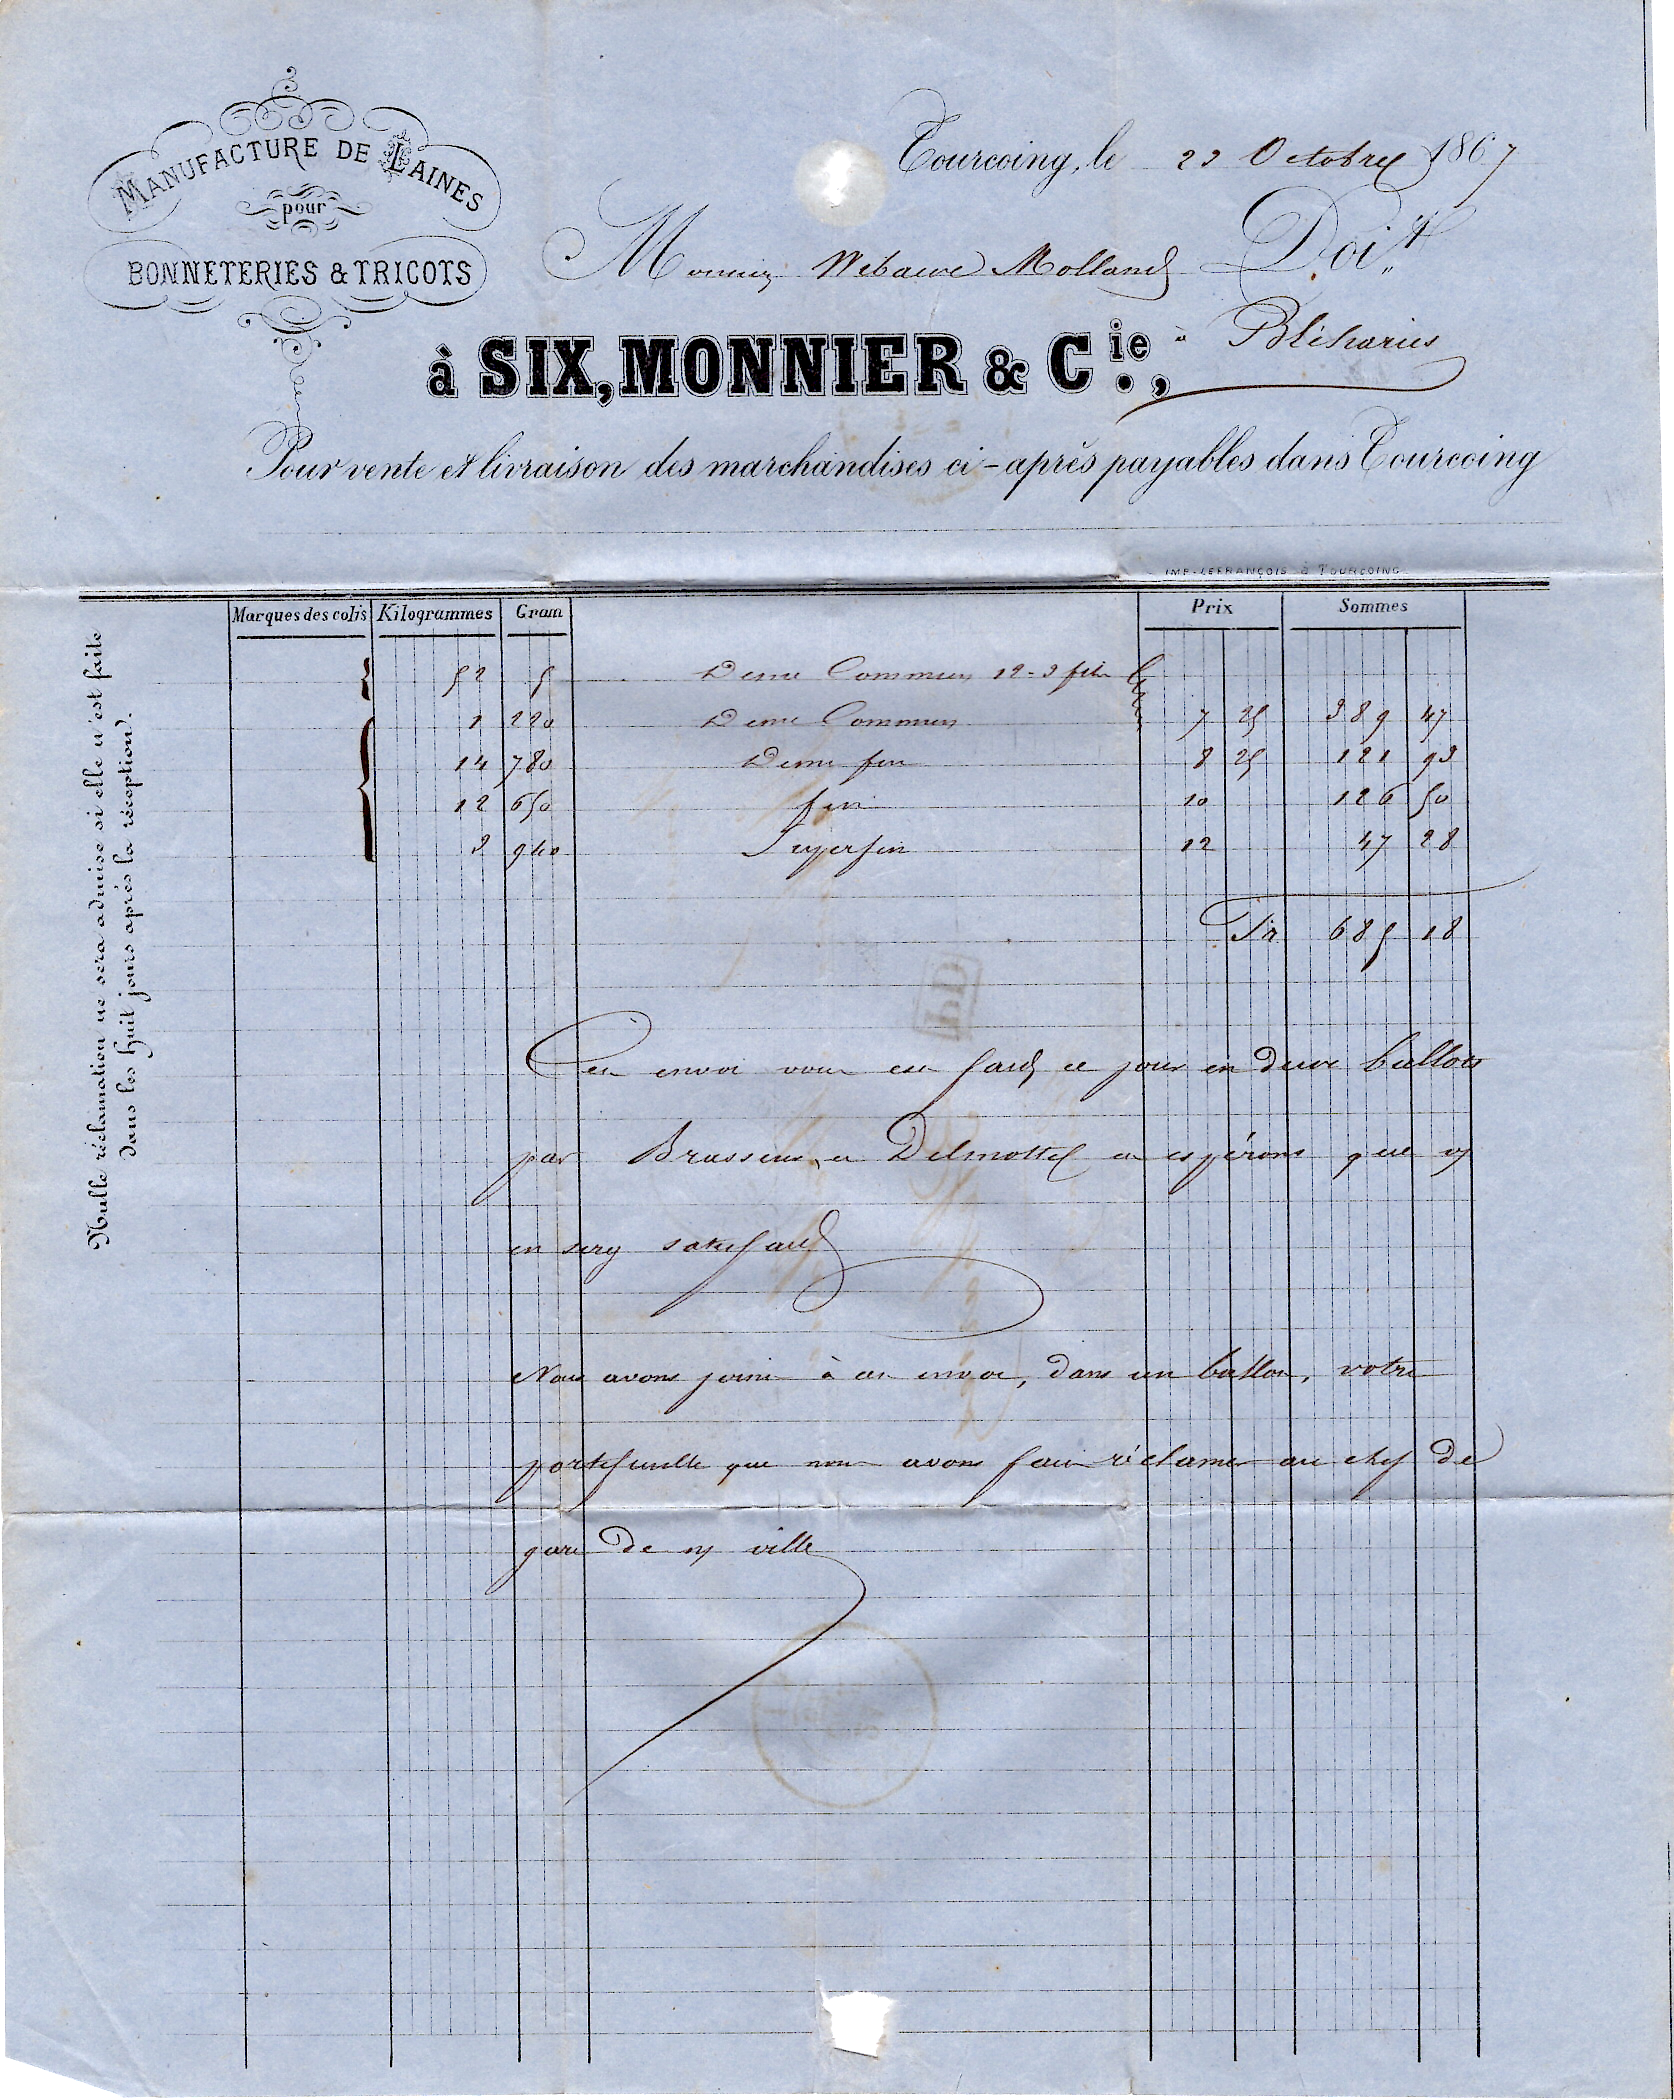 MANUFACTURE DE LAINES
pour
BONNETERIES & TRICOTS
Tourcoing, le 23 Octobre 1867
Monsieur Debaeve Molland Doit
à SIX, MONNIER & Cie., à Bléharies
Pour vente et livraison des marchandises ci-après payables dans Tourcoing
IMP. LEFRANÇOIS à TOURCOING
Marques des colis Kilogrammes Gram Prix Sommes
52 5 Demi Commun 12-3 fils
1 220 Demi Commun 7 25 389 47
14 780 Demi fin 8 25 121 93
12 650 fin 10 126 50
3 940 Superfin 12 47 28
Fr 685 18
Cet envoi vous est fait ce jour en deux ballots
par Brasseur et Delmotte et espérons que vs
en serez satisfait
Nous avons joint à cet envoi, dans un ballot, votre
portefeuille que nous avons fait réclamer au chef de
gare de ville
Nulle réclamation ne sera admise si elle n'est faite
dans les Huit jours après la réception.
PD